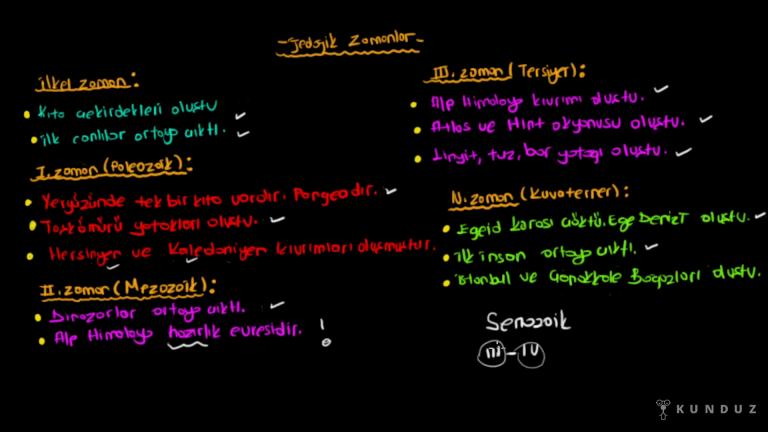 - Jeolojik Zamanlar -
İlkel zaman:
Kıta çekirdekleri oluştu
İlk canlılar ortaya çıktı.
I. zaman (Paleozoik):
Yeryüzünde tek bir kıta vardır. Pangeadır.
Taşkömürü yatakları oluştu.
Hersinyen ve Kaledoniyen kıvrımları oluşmuştur.
II. zaman (Mezozoik):
Dinozorlar ortaya çıktı.
Alp Himalaya hazırlık evresidir. !
III. zaman (Tersiyer):
Alp Himalaya kıvrımı oluştu.
Atlas ve Hint okyanusu oluştu.
Linyit, tuz, bor yatağı oluştu.
IV. zaman (Kuvaterner):
Egeid karası çöktü. Ege Denizi oluştu.
İlk insan ortaya çıktı.
İstanbul ve Çanakkale Boğazları oluştu.
Senozoik
III - IV
KUNDUZ